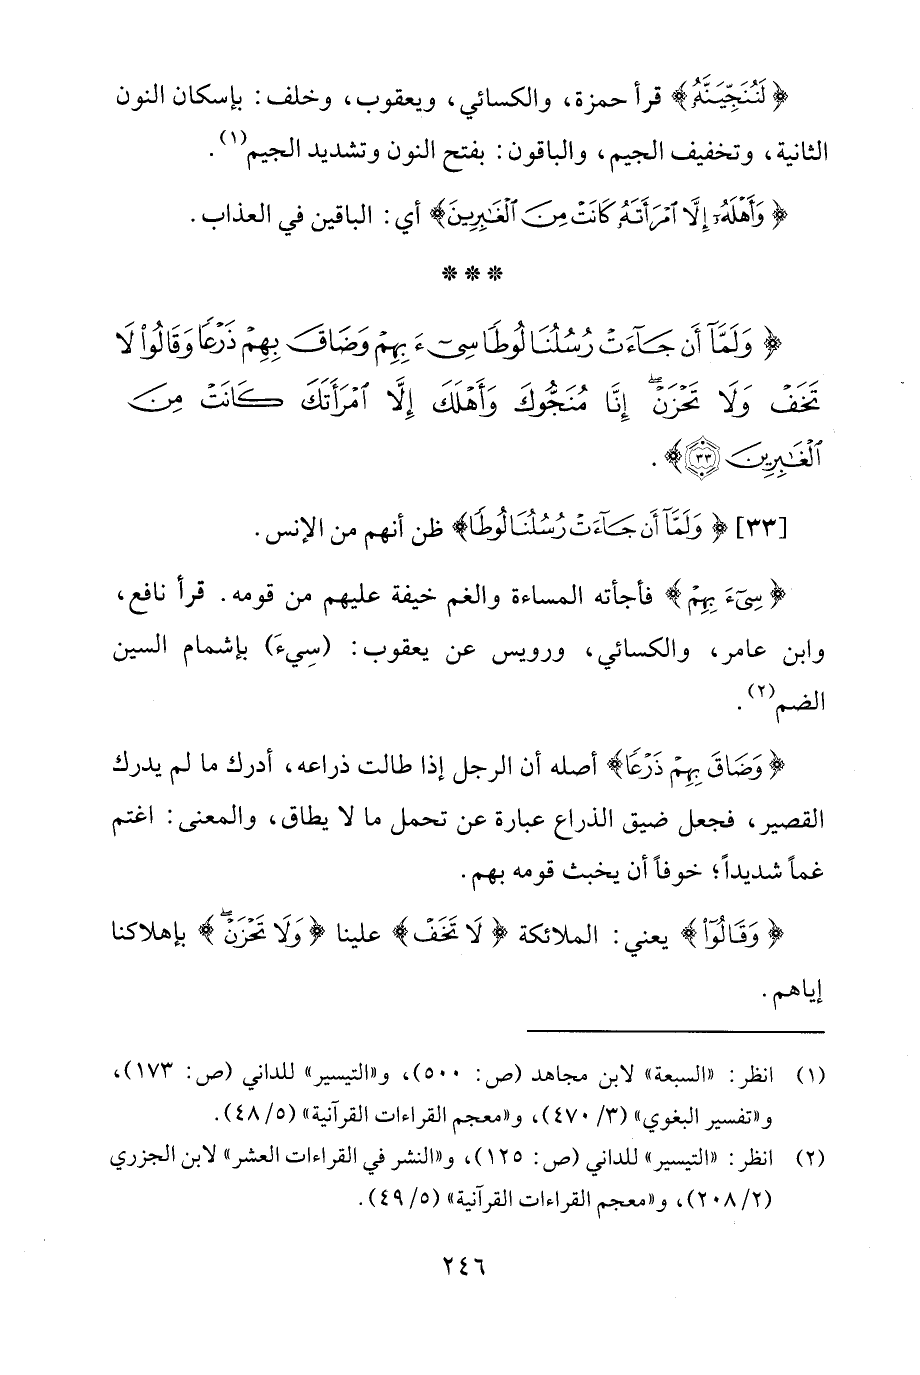 ﴿لَنُنَجِّيَنَّهُ﴾ قرأ حمزة، والكسائي، ويعقوب، وخلف: بإسكان النون
الثانية، وتخفيف الجيم، والباقون: بفتح النون وتشديد الجيم(١).
﴿وَأَهْلَهُۥٓ إِلَّا ٱمْرَأَتَهُۥ كَانَتْ مِنَ ٱلْغَٰبِرِينَ﴾ أي: الباقين في العذاب.
* * *
﴿وَلَمَّآ أَن جَآءَتْ رُسُلُنَا لُوطًا سِىٓءَ بِهِمْ وَضَاقَ بِهِمْ ذَرْعًا وَقَالُوا۟ لَا
تَخَفْ وَلَا تَحْزَنْ ۖ إِنَّا مُنَجُّوكَ وَأَهْلَكَ إِلَّا ٱمْرَأَتَكَ كَانَتْ مِنَ
ٱلْغَٰبِرِينَ ٣٣﴾.
[٣٣] ﴿وَلَمَّآ أَن جَآءَتْ رُسُلُنَا لُوطًا﴾ ظن أنهم من الإنس.
﴿سِىٓءَ بِهِمْ﴾ فأجأته المساءة والغم خيفة عليهم من قومه. قرأ نافع،
وابن عامر، والكسائي، ورويس عن يعقوب: (سِيءَ) بإشمام السين
الضم(٢).
﴿وَضَاقَ بِهِمْ ذَرْعًا﴾ أصله أن الرجل إذا طالت ذراعه، أدرك ما لم يدرك
القصير، فجعل ضيق الذراع عبارة عن تحمل ما لا يطاق، والمعنى: اغتم
غماً شديداً؛ خوفاً أن يخبث قومه بهم.
﴿وَقَالُوٓا۟﴾ يعني: الملائكة ﴿لَا تَخَفْ﴾ علينا ﴿وَلَا تَحْزَنْ ۖ﴾ بإهلاكنا
إياهم.
(١) انظر: «السبعة» لابن مجاهد (ص: ٥٠٠)، و«التيسير» للداني (ص: ١٧٣)،
و«تفسير البغوي» (٣/ ٤٧٠)، و«معجم القراءات القرآنية» (٥/ ٤٨).
(٢) انظر: «التيسير» للداني (ص: ١٢٥)، و«النشر في القراءات العشر» لابن الجزري
(٢/ ٢٠٨)، و«معجم القراءات القرآنية» (٥/ ٤٩).
٢٤٦